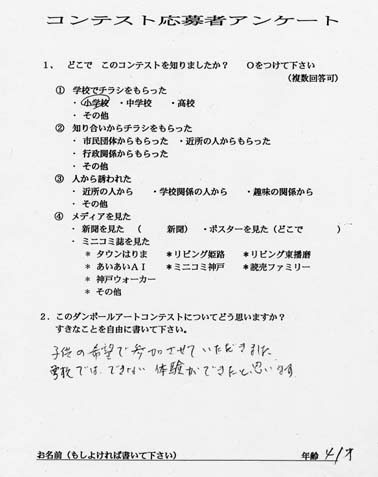 コンテスト応募者アンケート
1、 どこで このコンテストを知りましたか？ Oをつけて下さい
（複数回答可）
① 学校でチラシをもらった
・小学校 ・中学校 ・高校
・ その他
② 知り合いからチラシをもらった
・ 市民団体からもらった ・近所の人からもらった
・ 行政関係からもらった
・ その他
③ 人から誘われた
・ 近所の人から ・学校関係の人から ・趣味の関係から
・ その他
④ メディアを見た
・ 新聞を見た （ 新聞） ・ポスターを見た（どこで ）
・ ミニコミ誌を見た
＊ タウンはりま ＊リビング姫路 ＊リビング東播磨
＊ あいあいＡＩ ＊ミニコミ神戸 ＊読売ファミリー
＊ 神戸ウォーカー
＊ その他
2．このダンボールアートコンテストについてどう思いますか？
すきなことを自由に書いて下さい。
子供の希望で参加させていただきました
学校では、できない 体験ができたと思います
お名前（もしよければ書いて下さい） 年齢 41才